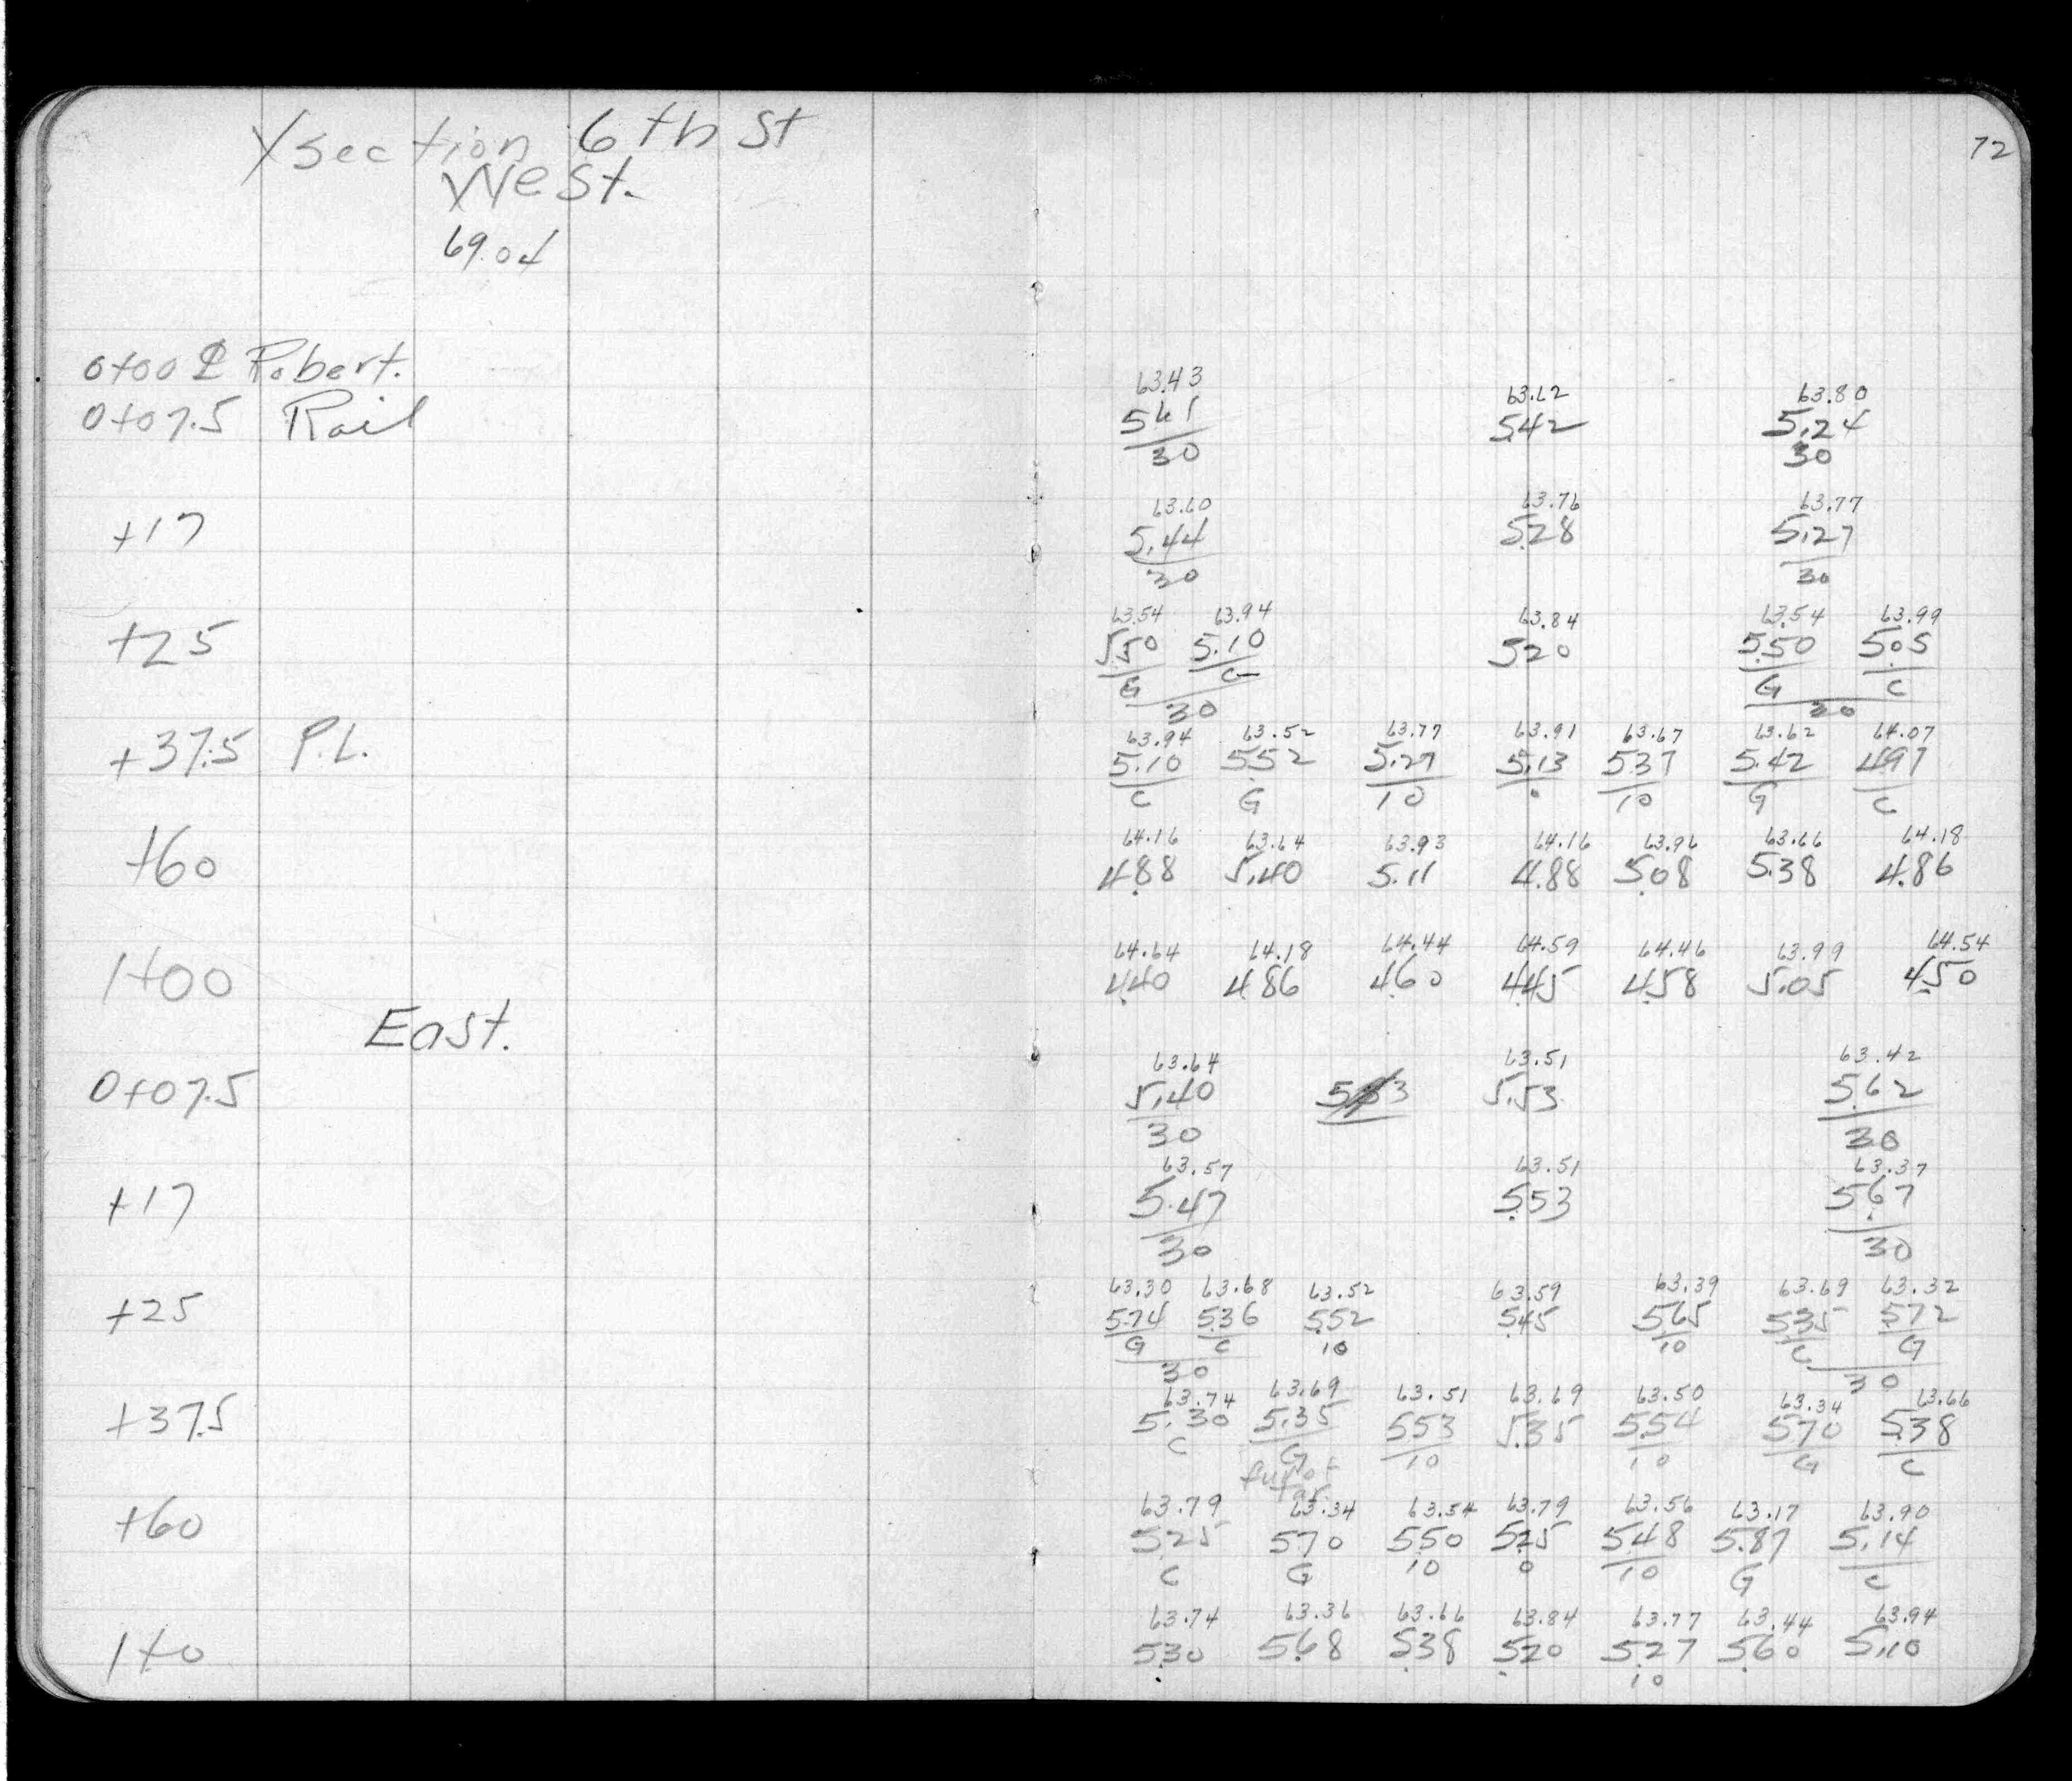 Xsection 6th St
West.
69.04
72
0+00 ℄ Robert.
63.43 63.62 63.80
0+07.5 Rail 5.61 5.42 5.24
30 30
63.60 63.76 63.77
+17 5.44 5.28 5.27
30 30
63.54 63.94 63.84 63.54 63.99
+25 5.50 5.10 5.20 5.50 5.05
G C G C
30 30
63.94 63.52 63.77 63.91 63.67 63.62 64.07
+37.5 P.L. 5.10 5.52 5.27 5.13 5.37 5.42 4.97
C G 10 0 10 G C
64.16 63.64 63.93 64.16 63.96 63.66 64.18
+60 4.88 5.40 5.11 4.88 5.08 5.38 4.86
64.64 64.18 64.44 64.59 64.46 63.99 64.54
1+00 4.40 4.86 4.60 4.45 4.58 5.05 4.50
East.
63.64 63.51 63.42
0+07.5 5.40 5.53 5.62
30 30
63.57 63.51 63.37
+17 5.47 5.53 5.67
30 30
63.30 63.68 63.52 63.59 63.39 63.69 63.32
+25 5.74 5.36 5.52 5.45 5.65 5.35 5.72
G C 10 10 C G
30 30
63.74 63.69 63.51 63.69 63.50 63.34 63.66
+37.5 5.30 5.35 5.53 5.35 5.54 5.70 5.38
C G 10 10 G C
full of
tar
63.79 63.34 63.54 63.79 63.56 63.17 63.90
+60 5.25 5.70 5.50 5.25 5.48 5.87 5.14
C G 10 0 10 G C
63.74 63.36 63.66 63.84 63.77 63.44 63.94
1+0 5.30 5.68 5.38 5.20 5.27 5.60 5.10
10